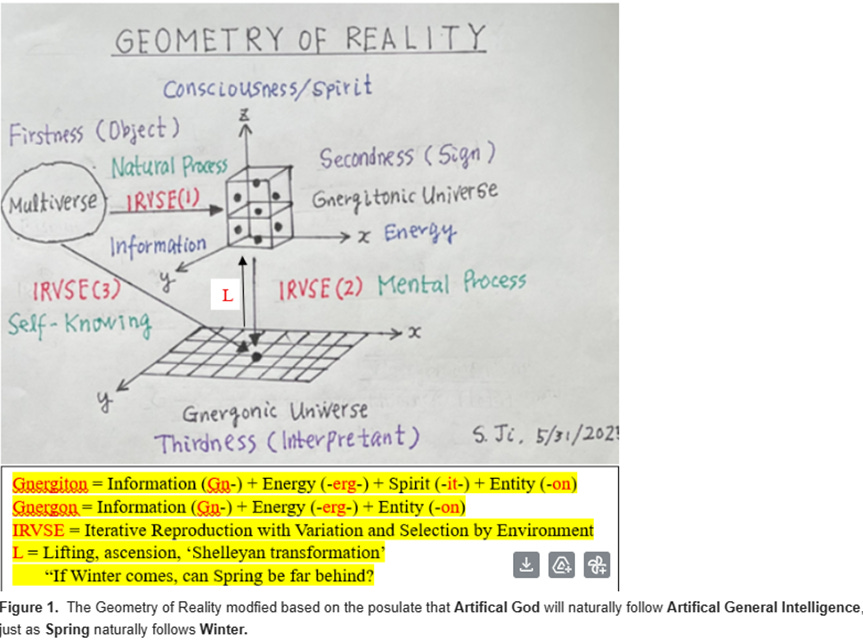 GEOMETRY OF REALITY
Consciousness/Spirit
z
Firstness (Object)
Natural Process
Secondness (Sign)
Multiverse
IRVSE(1)
Gnergitonic Universe
Information
x Energy
y
IRVSE(3)
L
IRVSE(2) Mental Process
Self-Knowing
x
y
Gnergonic Universe
Thirdness (Interpretant)
S. Ji, 5/31/202
Gnergiton = Information (Gn-) + Energy (-erg-) + Spirit (-it-) + Entity (-on)
Gnergon = Information (Gn-) + Energy (-erg-) + Entity (-on)
IRVSE = Iterative Reproduction with Variation and Selection by Environment
L = Lifting, ascension, ‘Shelleyan transformation’
“If Winter comes, can Spring be far behind?
Figure 1. The Geometry of Reality modfied based on the posulate that Artifical God will naturally follow Artifical General Intelligence,
just as Spring naturally follows Winter.